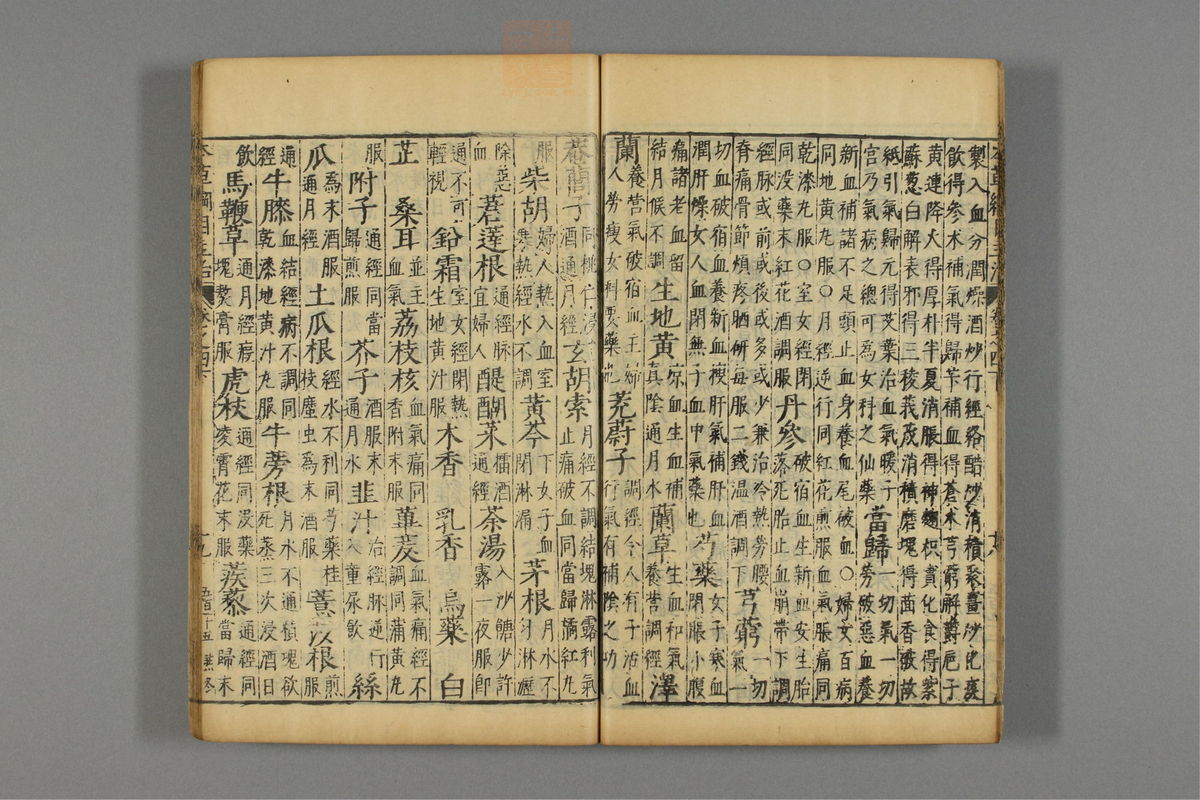 製入血分潤燥酒炒行經絡醋炒消積聚薑炒化痰
飲得參朮補氣得歸芐補血得蒼朮芎藭解鬱得巵子
黃連降火得厚朴半夏消脹得神麴枳實化食得紫
蘇葱白解表邪得三稜莪茂消積磨塊得茴香破故
紙引氣歸元得艾葉治血氣暖子
宮乃氣病之總司爲女科之仙藥 當歸 一切氣一切勞破惡血養
新血補諸不足頭止血身養血尾破血○婦女百病
同地黃丸服○月經逆行同紅花煎服血氣脹痛同
乾漆丸服○室女經閉
同没藥末紅花酒調服 丹參 破宿血生新血安生胎落死胎止血崩帶下調
經脉或前或後或多或少兼治冷熱勞腰
脊痛骨節煩疼晒研每服二錢温酒調下 芎藭 一切氣一
切血破宿血養新血搜肝氣補肝血
潤肝燥女人血閉無子血中氣藥也 芍藥 女子寒血閉脹小腹
痛諸老血留
結月候不調 生地黃 凉血生血補真陰通月水 蘭草 生血和氣養營調經 澤
蘭 養營氣破宿血主婦人勞瘦女科要藥也 茺蔚子 調經令人有子活血行氣有補陰之功
菴䕡子 同桃仁浸酒通月經 玄胡索 月經不調結塊淋露利氣止痛破血同當歸橘紅丸
服 柴胡 婦人熱入血室寒熱經水不調 黃芩 下女子血閉淋漏 茅根 月水不勻淋瀝
除惡血 茖蓬根 通經脉宜婦人 醍醐菜 擂酒通經 茶湯 入沙餹少許露一夜服卽
通不可輕視 鉛霜 室女經閉熱生地黃汁服 木香 乳香 烏藥 白
芷 桑耳 並主血氣 荔枝核 血氣痛同香附末服 葟荽 血氣痛經不調同蒲黃丸
服 附子 通經同當歸煎服 芥子 酒服末通月水 韭汁 治經脉逆行入童尿飲 絲
瓜 爲末酒服通月經 土瓜根 經水不利同芍藥桂枝䗪虫爲末酒服 薏苡根 煎服
通經 牛膝 血結經病不調同乾漆地黃汁丸服 牛蒡根 月水不通積塊欲死蒸三次浸酒日
飲 馬鞭草 通月經瘕塊熬膏服 虎杖 通經同没藥凌霄花末服 蒺藜 通經同當歸末